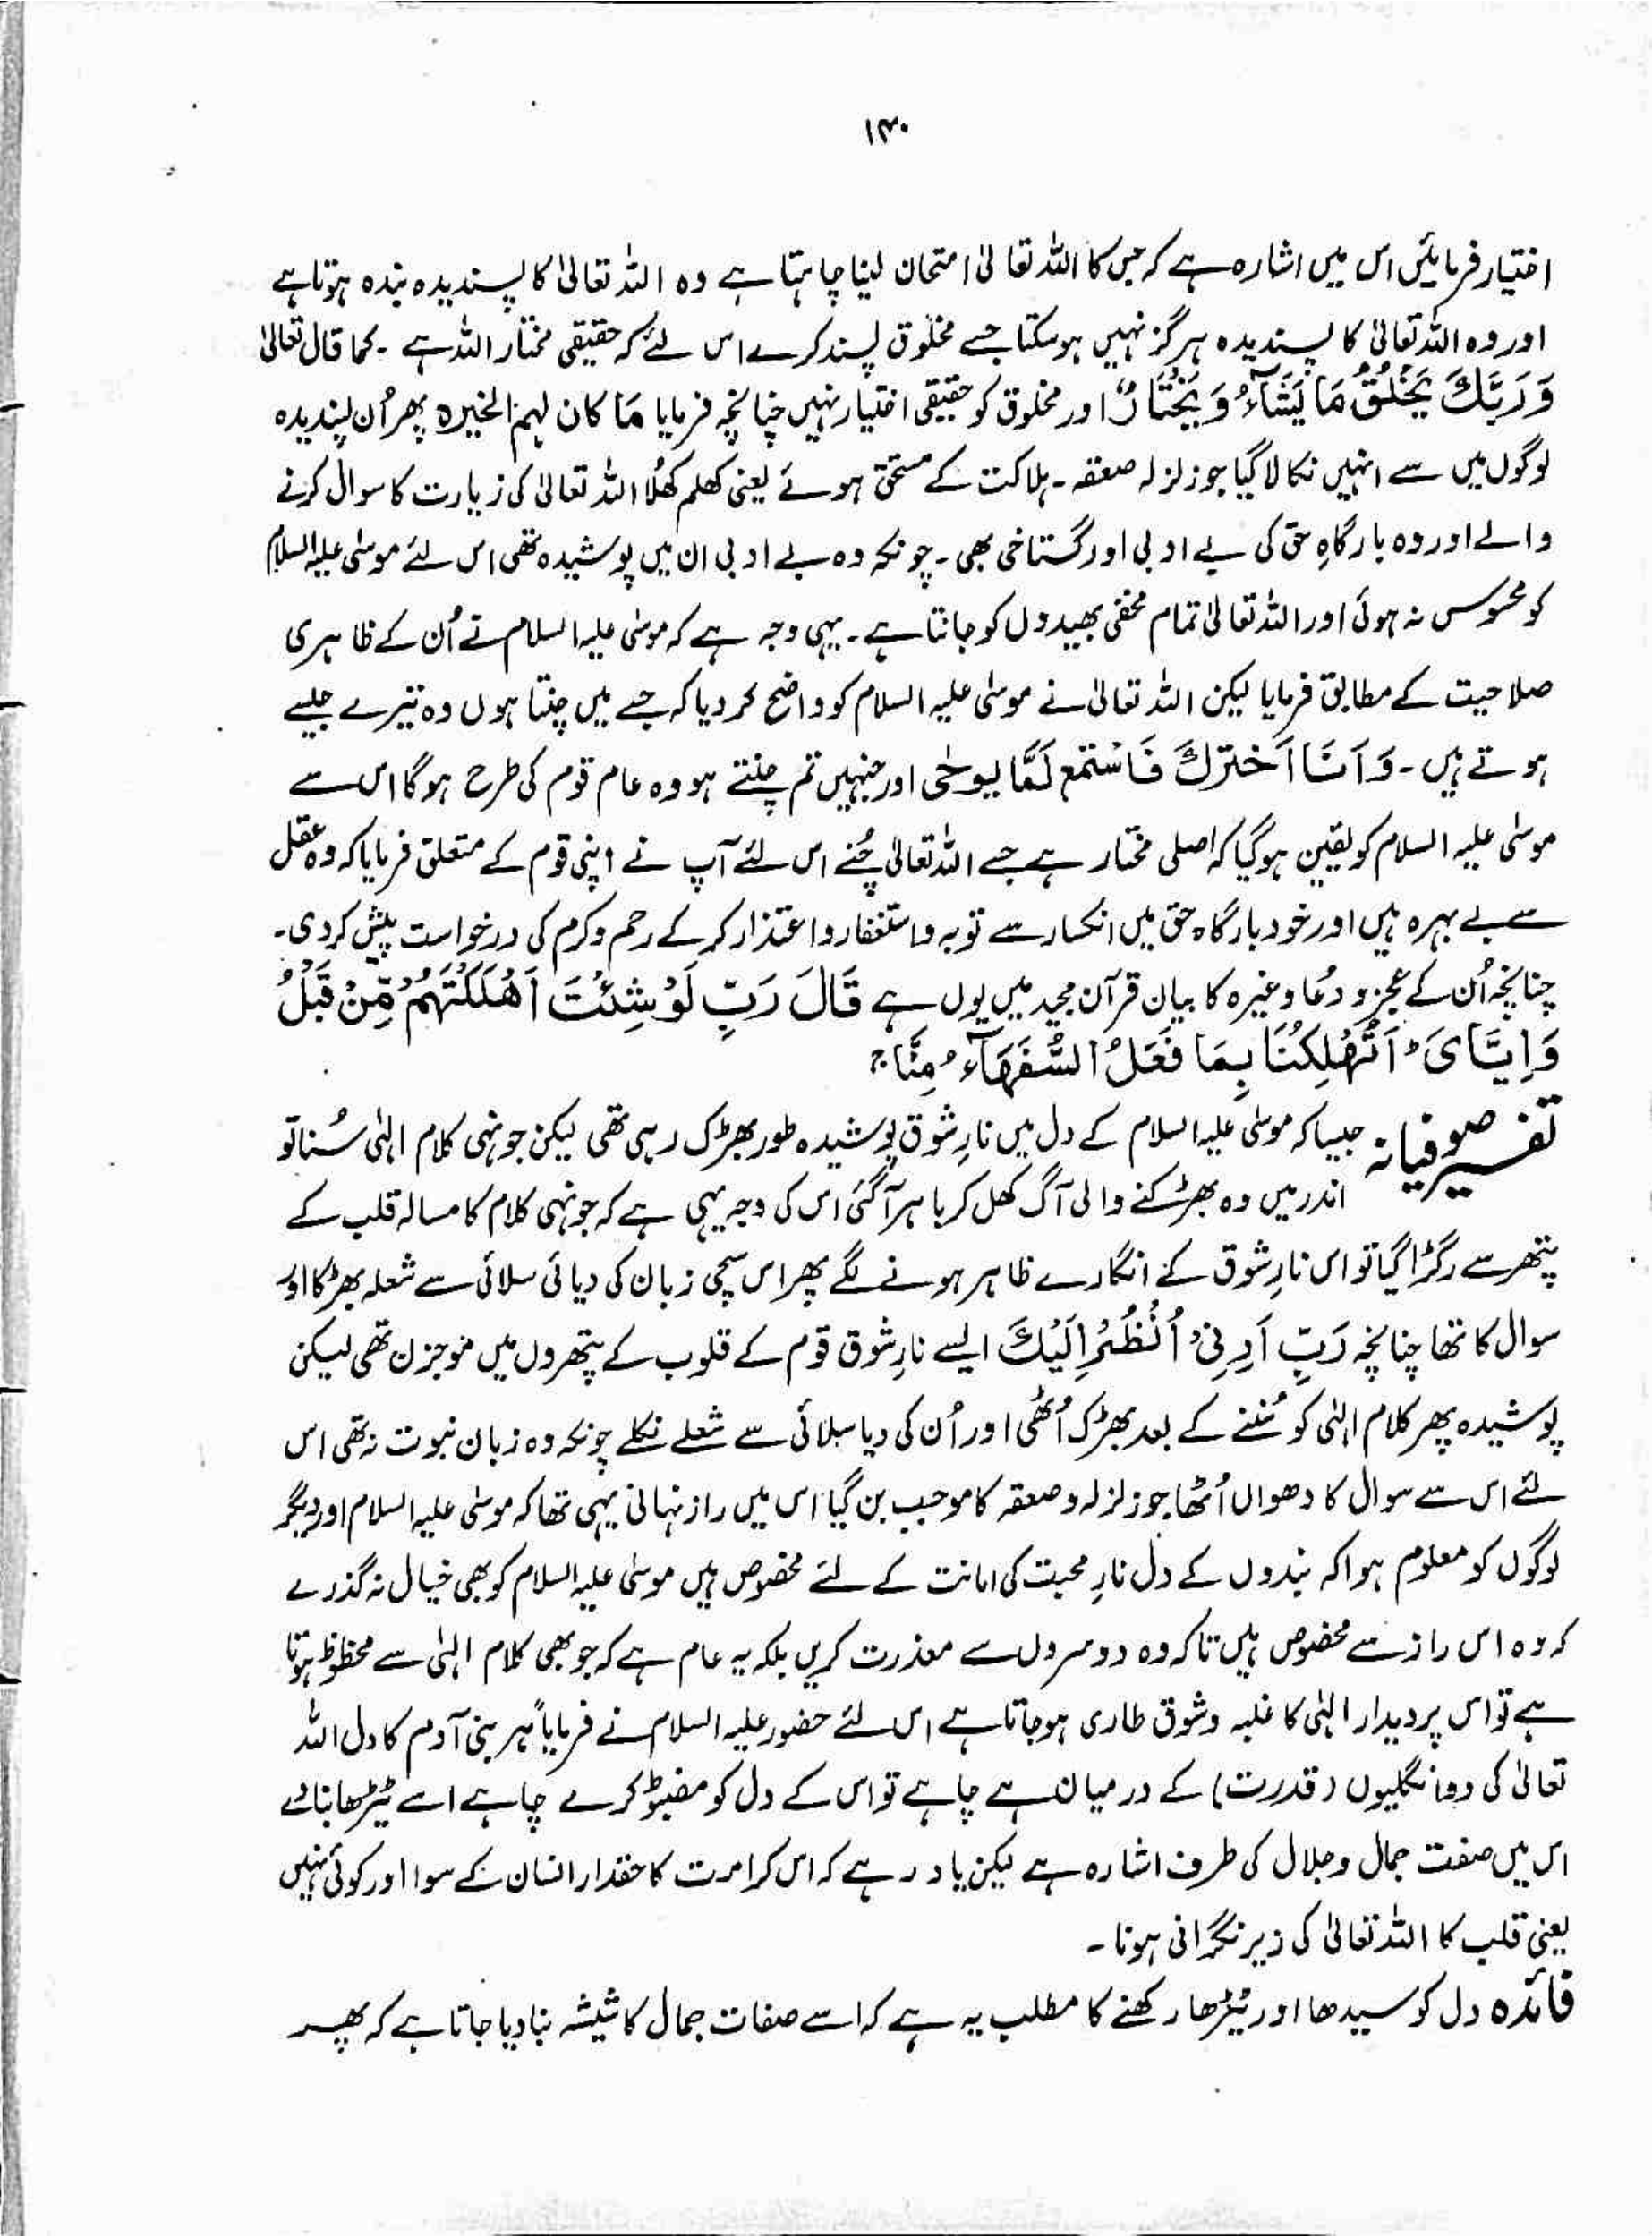 ۱۳۰
اختیار فرمائیں اس میں اشارہ ہے کہ جس کا اللہ تعالیٰ امتحان لینا چاہتا ہے وہ اللہ تعالیٰ کا پسندیدہ بندہ ہوتا ہے
اور وہ اللہ تعالیٰ کا پسندیدہ ہرگز نہیں ہو سکتا جسے مخلوق پسند کرے اس لئے کہ حقیقی مختار اللہ ہے ۔ کما قال تعالیٰ
وَ رَبُّكَ یَخْلُقُ مَا یَشَآءُ وَ یَخْتَارُ اور مخلوق کو حقیقی اختیار نہیں چنانچہ فرمایا مَا كان لہم الخیرہ پھر اُن پسندیدہ
لوگوں میں سے انہیں نکالا گیا جو زلزلہ صعقہ ۔ ہلاکت کے مستحق ہوئے یعنی کھلم کھُلا اللہ تعالیٰ کی زیارت کا سوال کرنے
والے اور وہ بارگاہِ حق کی بے ادبی اور گستاخی بھی ۔ چونکہ وہ بے ادبی ان میں پوشیدہ تھی اس لئے موسیٰ علیہ السلام
کو محسوس نہ ہوئی اور اللہ تعالیٰ تمام مخفی بھیدوں کو جانتا ہے ۔ یہی وجہ ہے کہ موسیٰ علیہ السلام نے اُن کے ظاہری
صلاحیت کے مطابق فرمایا لیکن اللہ تعالیٰ نے موسیٰ علیہ السلام کو واضح کر دیا کہ جسے میں چنتا ہوں وہ تیرے جیسے
ہوتے ہیں ۔ وَ اَنَا اَخترتكَ فَاسْتمع لَمَّا یوحٰی اور جنہیں تم چنتے ہو وہ عام قوم کی طرح ہوگا اس سے
موسیٰ علیہ السلام کو یقین ہو گیا کہ اصلی مختار ہے جسے اللہ تعالیٰ چُنے اس لئے آپ نے اپنی قوم کے متعلق فرمایا کہ وہ عقل
سے بے بہرہ ہیں اور خود بارگاہ حق میں انکسار سے توبہ واستغفار واعتذار کر کے رحم وکرم کی درخواست پیش کر دی ۔
چنانچہ اُن کے عجز و دُعا وغیرہ کا بیان قرآن مجید میں یوں ہے قَالَ رَبِّ لَوْ شِئْتَ اَهْلَكْتَهُمْ مِّنْ قَبْلُ
وَ اِیَّایَ ؕ اَتُهْلِكُنَا بِمَا فَعَلَ السُّفَهَآءُ مِنَّا ۚ
تفسیر صوفیانہ جیسا کہ موسیٰ علیہ السلام کے دل میں نارِ شوق پوشیدہ طور بھڑک رہی تھی لیکن جونہی کلام الٰہی سُنا تو
اندر میں وہ بھڑکنے والی آگ کھل کر باہر آگئی اس کی وجہ یہی ہے کہ جونہی کلام کا مسالہ قلب کے
پتھر سے رگڑا گیا تو اس نارِ شوق کے انگارے ظاہر ہونے لگے پھر اس سچی زبان کی دیائی سلائی سے شعلہ بھڑکا اور
سوال کا تھا چنانچہ رَبِّ اَرِنِیْ اُنْظُرْ اِلَیْكَ ایسے نارِ شوق قوم کے قلوب کے پتھروں میں موجزن تھی لیکن
پوشیدہ پھر کلام الٰہی کو سُننے کے بعد بھڑک اُٹھی اور اُن کی دیا سلائی سے شعلے نکلے چونکہ وہ زبان نبوت نہ تھی اس
لئے اس سے سوال کا دھواں اُٹھا جو زلزلہ وصعقہ کا موجب بن گیا اس میں راز نہانی یہی تھا کہ موسیٰ علیہ السلام اور دیگر
لوگوں کو معلوم ہوا کہ بندوں کے دل نارِ محبت کی امانت کے لئے مخصوص ہیں موسیٰ علیہ السلام کو بھی خیال نہ گذرے
کہ وہ اس راز سے مخصوص ہیں تاکہ وہ دوسروں سے معذرت کریں بلکہ یہ عام ہے کہ جو بھی کلام الٰہی سے محظوظ ہوتا
ہے تو اس پر دیدار الٰہی کا غلبہ وشوق طاری ہو جاتا ہے اس لئے حضور علیہ السلام نے فرمایا "ہر بنی آدم کا دل اللہ
تعالیٰ کی دو انگلیوں (قدرت) کے درمیان ہے چاہے تو اس کے دل کو مضبوط کرے چاہے اسے ٹیڑھا بنائے
اس میں صفت جمال وجلال کی طرف اشارہ ہے لیکن یاد رہے کہ اس کرامت کا حقدار انسان کے سوا اور کوئی نہیں
یعنی قلب کا اللہ تعالیٰ کی زیر نگرانی ہونا ۔
فائدہ دل کو سیدھا اور ٹیڑھا رکھنے کا مطلب یہ ہے کہ اسے صفات جمال کا شیشہ بنا دیا جاتا ہے کہ پھر